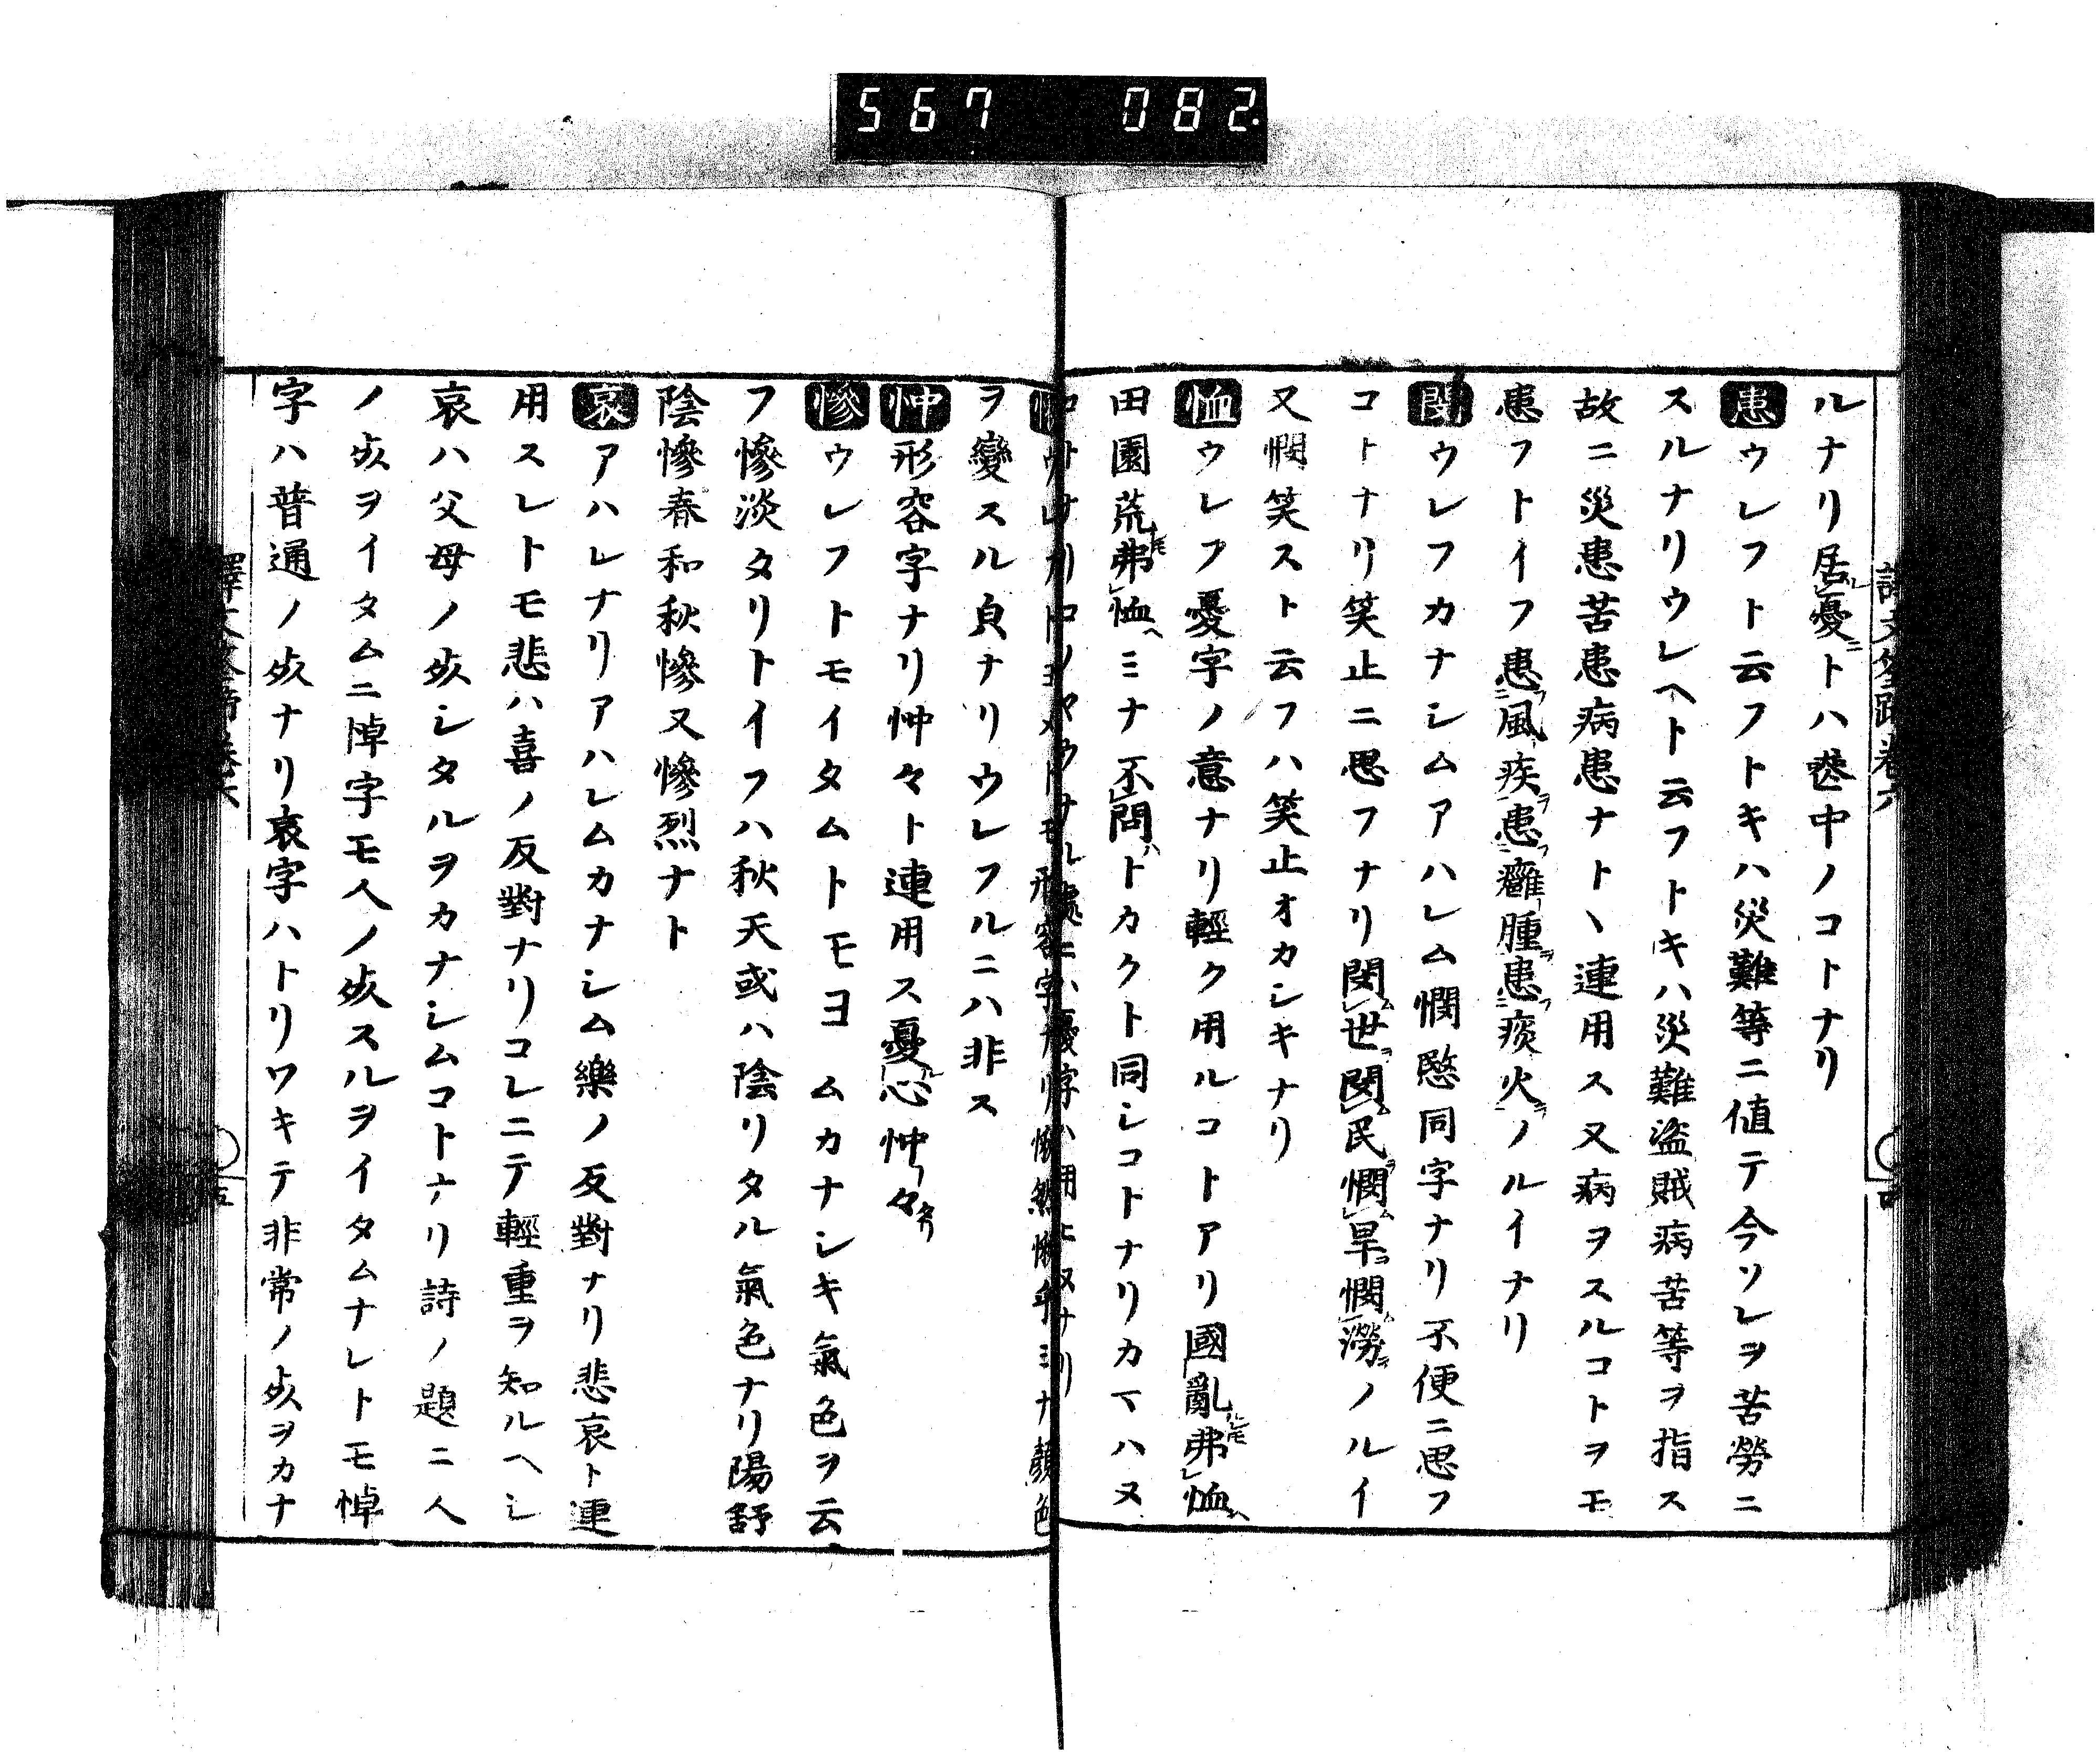 567 082
ルナリ居憂トハ喪中ノコトナリ
患ウレフト云フトキハ災難等ニ値テ今ソレヲ苦勞ニ
スルナリウレヘト云フトキハ災難盜賊病苦等ヲ指ス
故ニ災患苦患病患ナトヽ連用ス又病ヲスルコトヲモ
患フトイフ患風疾患癰腫患痰火ノルイナリ
閔ウレフカナシムアハレム憫愍同字ナリ不便ニ思フ
コトナリ笑止ニ思フナリ閔世閔民憫旱憫澇ノルイ
又憫笑スト云フハ笑止オカシキナリ
恤ウレフ憂字ノ意ナリ輕ク用ルコトアリ國亂弗恤
田園荒弗恤ミナ不問トカクト同シコトナリカマハヌ
ヲ變スル皃ナリウレフルニハ非ス
忡形容字ナリ忡々ト連用ス憂心忡々
慘ウレフトモイタムトモヨムカナシキ氣色ヲ云
フ慘淡タリトイフハ秋天或ハ陰リタル氣色ナリ陽舒
陰慘春和秋慘又慘烈ナト
哀アハレナリアハレムカナシム樂ノ反對ナリ悲哀ト連
用スレトモ悲ハ喜ノ反對ナリコレニテ輕重ヲ知ルヘシ
哀ハ父母ノ死シタルヲカナシムコトナリ詩ノ題ニ人
ノ死ヲイタムニ悼字モ人ノ死スルヲイタムナレトモ悼
字ハ普通ノ死ナリ哀字ハトリワキテ非常ノ死ヲカナ